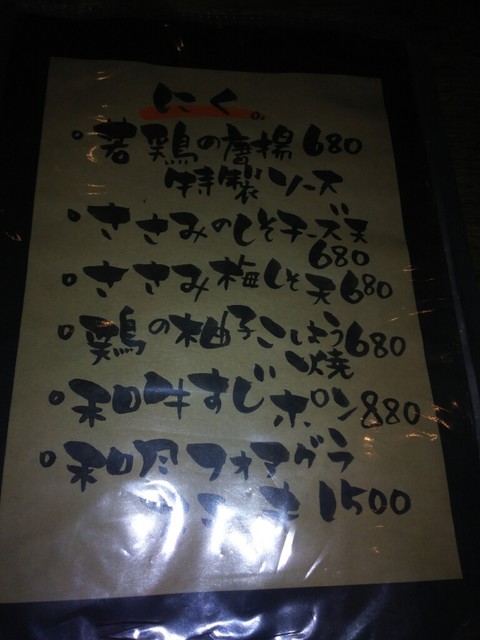 にく。
○若鶏の唐揚680
特製ソース
○ささみのしそチーズ天
680
○ささみ梅しそ天680
○鶏の柚子こしょう680
焼
○和牛すじポン880
○和風フォアグラ
1500